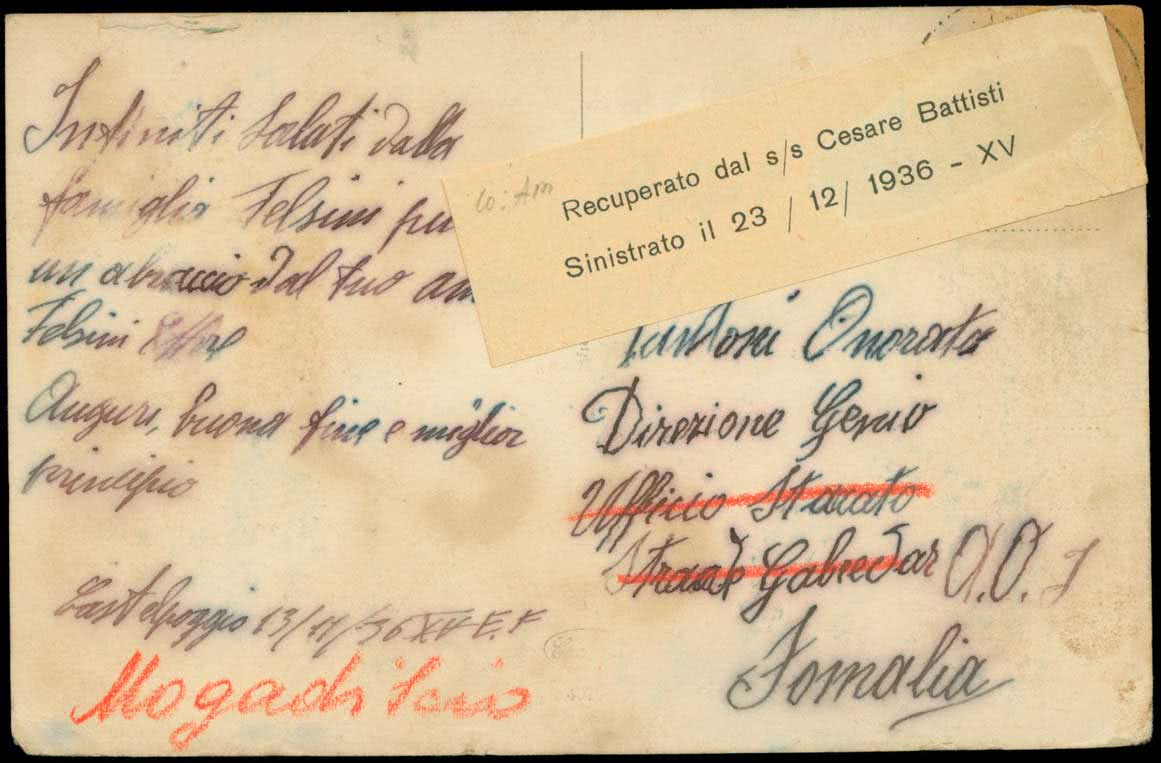 Infiniti Saluti dalla
famiglia Felsini più
un abraccio dal tuo
Felsini Ettore
Auguri, buona fine e miglior
principio
Castelpoggio 13/11/36 XV E. F
Mogadiscio
Recuperato dal s/s Cesare Battisti
Sinistrato il 23 / 12/ 1936 - XV
Onorato
Direzione Genio
Ufficio Staccato
Strade Gabredar A.O. I
Somalia